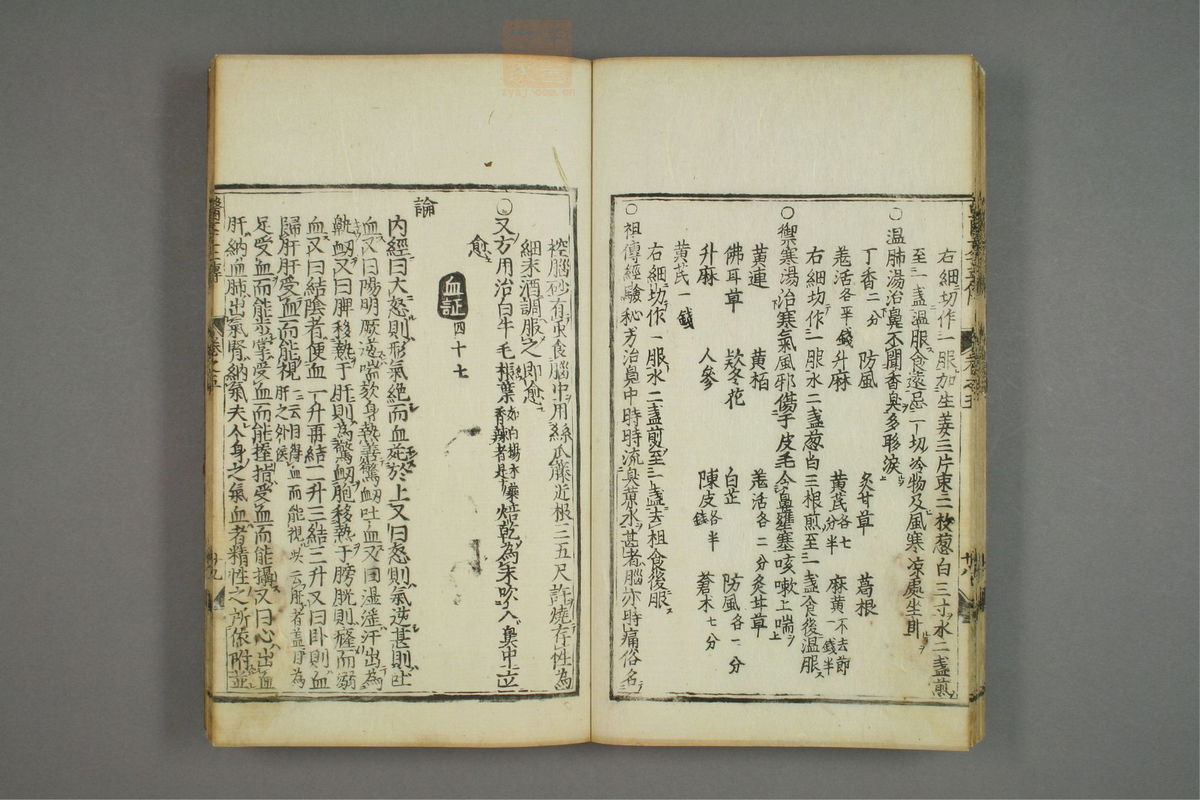 右細切作一服加生姜三片棗二枚葱白三寸水二盞煎
至一盞温服食遠忌一切冷物及風寒凉處坐臥
○温肺湯治鼻不聞香臭多眵淚
丁香二分 防風 炙甘草 葛根
羗活各半錢 升麻 黄芪各七分半 麻黄不去節一錢半
右細切作一服水二盞葱白三根煎至一盞食後温服
○禦寒湯治寒氣風邪傷于皮毛令鼻壅塞咳嗽上喘
黄連 黄栢 羗活各二分 炙甘草
佛耳草 欵冬花 白芷 防風各一分
升麻 人參 陳皮各半錢 蒼朮七分
黄芪一錢
右細切作一服水二盞煎至一盞去柤食後服
○祖傳經驗秘方治鼻中時時流臭黄水甚者腦亦時痛俗名
控腦砂有虫食腦中用絲瓜藤近根三五尺許燒存性為
細末酒調服之即愈
○又方用治白牛毛根葉焙乾為末吹入鼻中立
愈
血証四十七
論
内經曰大怒則形氣絶而血菀於上又曰怒則氣逆甚則嘔
血又曰陽明厥逆喘欬身熱善驚衂吐血又曰濕淫汗出為
鼽衂又曰脾移熱于肝則為驚衂胞移熱于膀胱則癃而溺
血又曰結陰者便血一升再結二升三結三升又曰卧則血
歸肝肝受血而能視
足受血而能步掌受血而能握指受血而能攝又曰心出血
肝納血肺出氣腎納氣夫人身之氣血者精性之所依附並